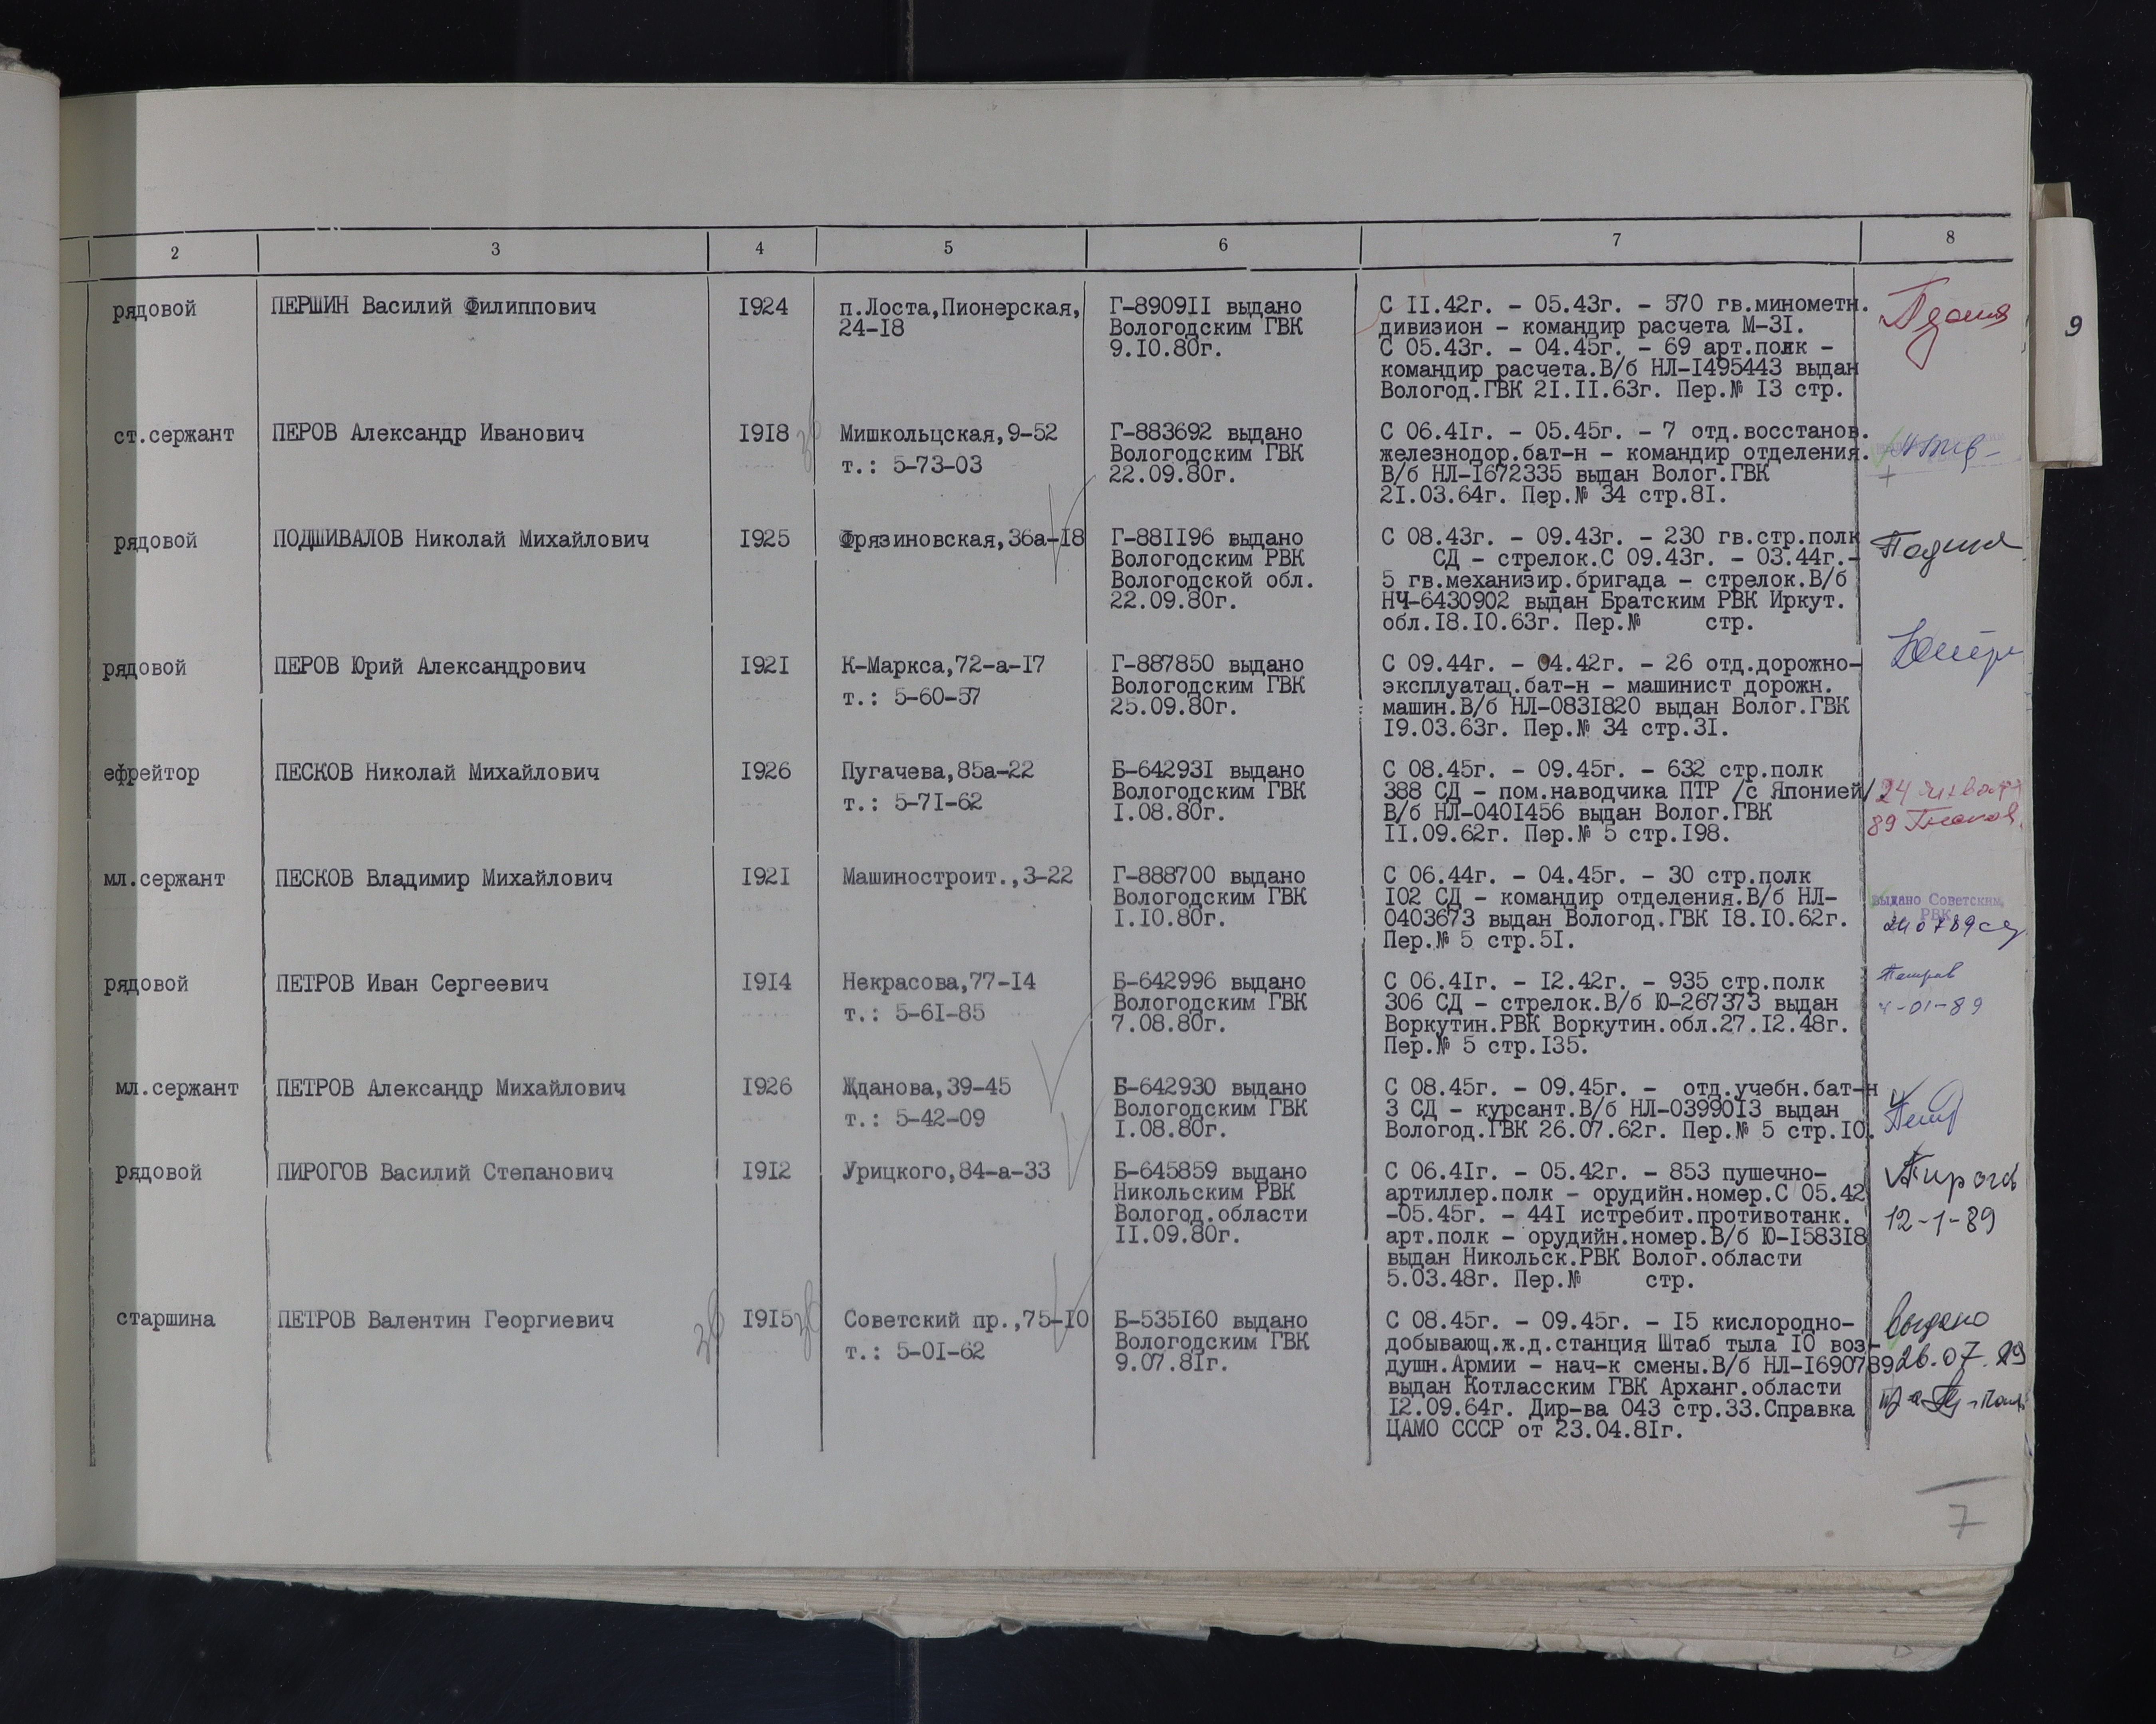 2 3 4 5 6 7 8
9
рядовой ПЕРШИН Василий Филиппович 1924 п.Лоста,Пионерская, Г-890911 выдано С 11.42г. - 05.43г. - 570 гв.минометн.
24-18 Вологодским ГВК дивизион - командир расчета М-31.
9.10.80г. С 05.43г. - 04.45г. - 69 арт.полк -
командир расчета.В/б НЛ-1495443 выдан
Вологод.ГВК 21.11.63г. Пер.№ 13 стр.
ст.сержант ПЕРОВ Александр Иванович 1918 Мишкольцская,9-52 Г-883692 выдано С 06.41г. - 05.45г. - 7 отд.восстанов.
Вологодским ГВК железнодор.бат-н - командир отделения.
т.: 5-73-03 22.09.80г. В/б НЛ-1672335 выдан Волог.ГВК
21.03.64г. Пер.№ 34 стр.81.
рядовой ПОДШИВАЛОВ Николай Михайлович 1925 Фрязиновская,36а-18 Г-881196 выдано С 08.43г. - 09.43г. - 230 гв.стр.полк
Вологодским РВК СД - стрелок.С 09.43г. - 03.44г.-
Вологодской обл. 5 гв.механизир.бригада - стрелок.В/б
22.09.80г. НЧ-6430902 выдан Братским РВК Иркут.
обл.18.10.63г. Пер.№ стр.
рядовой ПЕРОВ Юрий Александрович 1921 К-Маркса,72-а-17 Г-887850 выдано С 09.44г. - 04.42г. - 26 отд.дорожно-
Вологодским ГВК эксплуатац.бат-н - машинист дорожн.
т.: 5-60-57 25.09.80г. машин.В/б НЛ-0831820 выдан Волог.ГВК
19.03.63г. Пер.№ 34 стр.31.
ефрейтор ПЕСКОВ Николай Михайлович 1926 Пугачева,85а-22 Б-642931 выдано С 08.45г. - 09.45г. - 632 стр.полк
Вологодским ГВК 388 СД - пом.наводчика ПТР /с Японией/ 24 января
т.: 5-71-62 1.08.80г. В/б НЛ-0401456 выдан Волог.ГВК 89
11.09.62г. Пер.№ 5 стр.198.
мл.сержант ПЕСКОВ Владимир Михайлович 1921 Машиностроит.,3-22 Г-888700 выдано С 06.44г. - 04.45г. - 30 стр.полк
Вологодским ГВК 102 СД - командир отделения.В/б НЛ- выдано Советским
1.10.80г. 0403673 выдан Вологод.ГВК 18.10.62г. РВК
Пер.№ 5 стр.51.
рядовой ПЕТРОВ Иван Сергеевич 1914 Некрасова,77-14 Б-642996 выдано С 06.41г. - 12.42г. - 935 стр.полк Петров
Вологодским ГВК 306 СД - стрелок.В/б Ю-267373 выдан 4-01-89
т.: 5-61-85 7.08.80г. Воркутин.РВК Воркутин.обл.27.12.48г.
Пер.№ 5 стр.135.
мл.сержант ПЕТРОВ Александр Михайлович 1926 Жданова,39-45 Б-642930 выдано С 08.45г. - 09.45г. - отд.учебн.бат-н
Вологодским ГВК 3 СД - курсант.В/б НЛ-0399013 выдан
т.: 5-42-09 1.08.80г. Вологод.ГВК 26.07.62г. Пер.№ 5 стр.10.
рядовой ПИРОГОВ Василий Степанович 1912 Урицкого,84-а-33 Б-645859 выдано С 06.41г. - 05.42г. - 853 пушечно- Пирогов
Никольским РВК артиллер.полк - орудийн.номер.С 05.42
Вологод.области -05.45г. - 441 истребит.противотанк. 12-1-89
11.09.80г. арт.полк - орудийн.номер.В/б Ю-158318
выдан Никольск.РВК Волог.области
5.03.48г. Пер.№ стр.
старшина ПЕТРОВ Валентин Георгиевич 1915 Советский пр.,75-10 Б-535160 выдано С 08.45г. - 09.45г. - 15 кислородно- Выдано
Вологодским ГВК добывающ.ж.д.станция Штаб тыла 10 воз-
т.: 5-01-62 9.07.81г. душн.Армии - нач-к смены.В/б НЛ-1690789 26.07.89
выдан Котласским ГВК Арханг.области
12.09.64г. Дир-ва 043 стр.33.Справка
ЦАМО СССР от 23.04.81г.
7